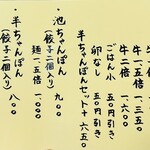 牛一.五倍 一.三五〇
牛二倍 一.六〇〇
ごはん小 五〇円引き
卵なし 五〇円引き
半ちゃんぽんセット+六五〇
池ちゃんぽん 九〇〇
(餃子二個入り)
麺一.五倍 一.〇〇〇
半ちゃんぽん 八〇〇
(餃子二個入り)